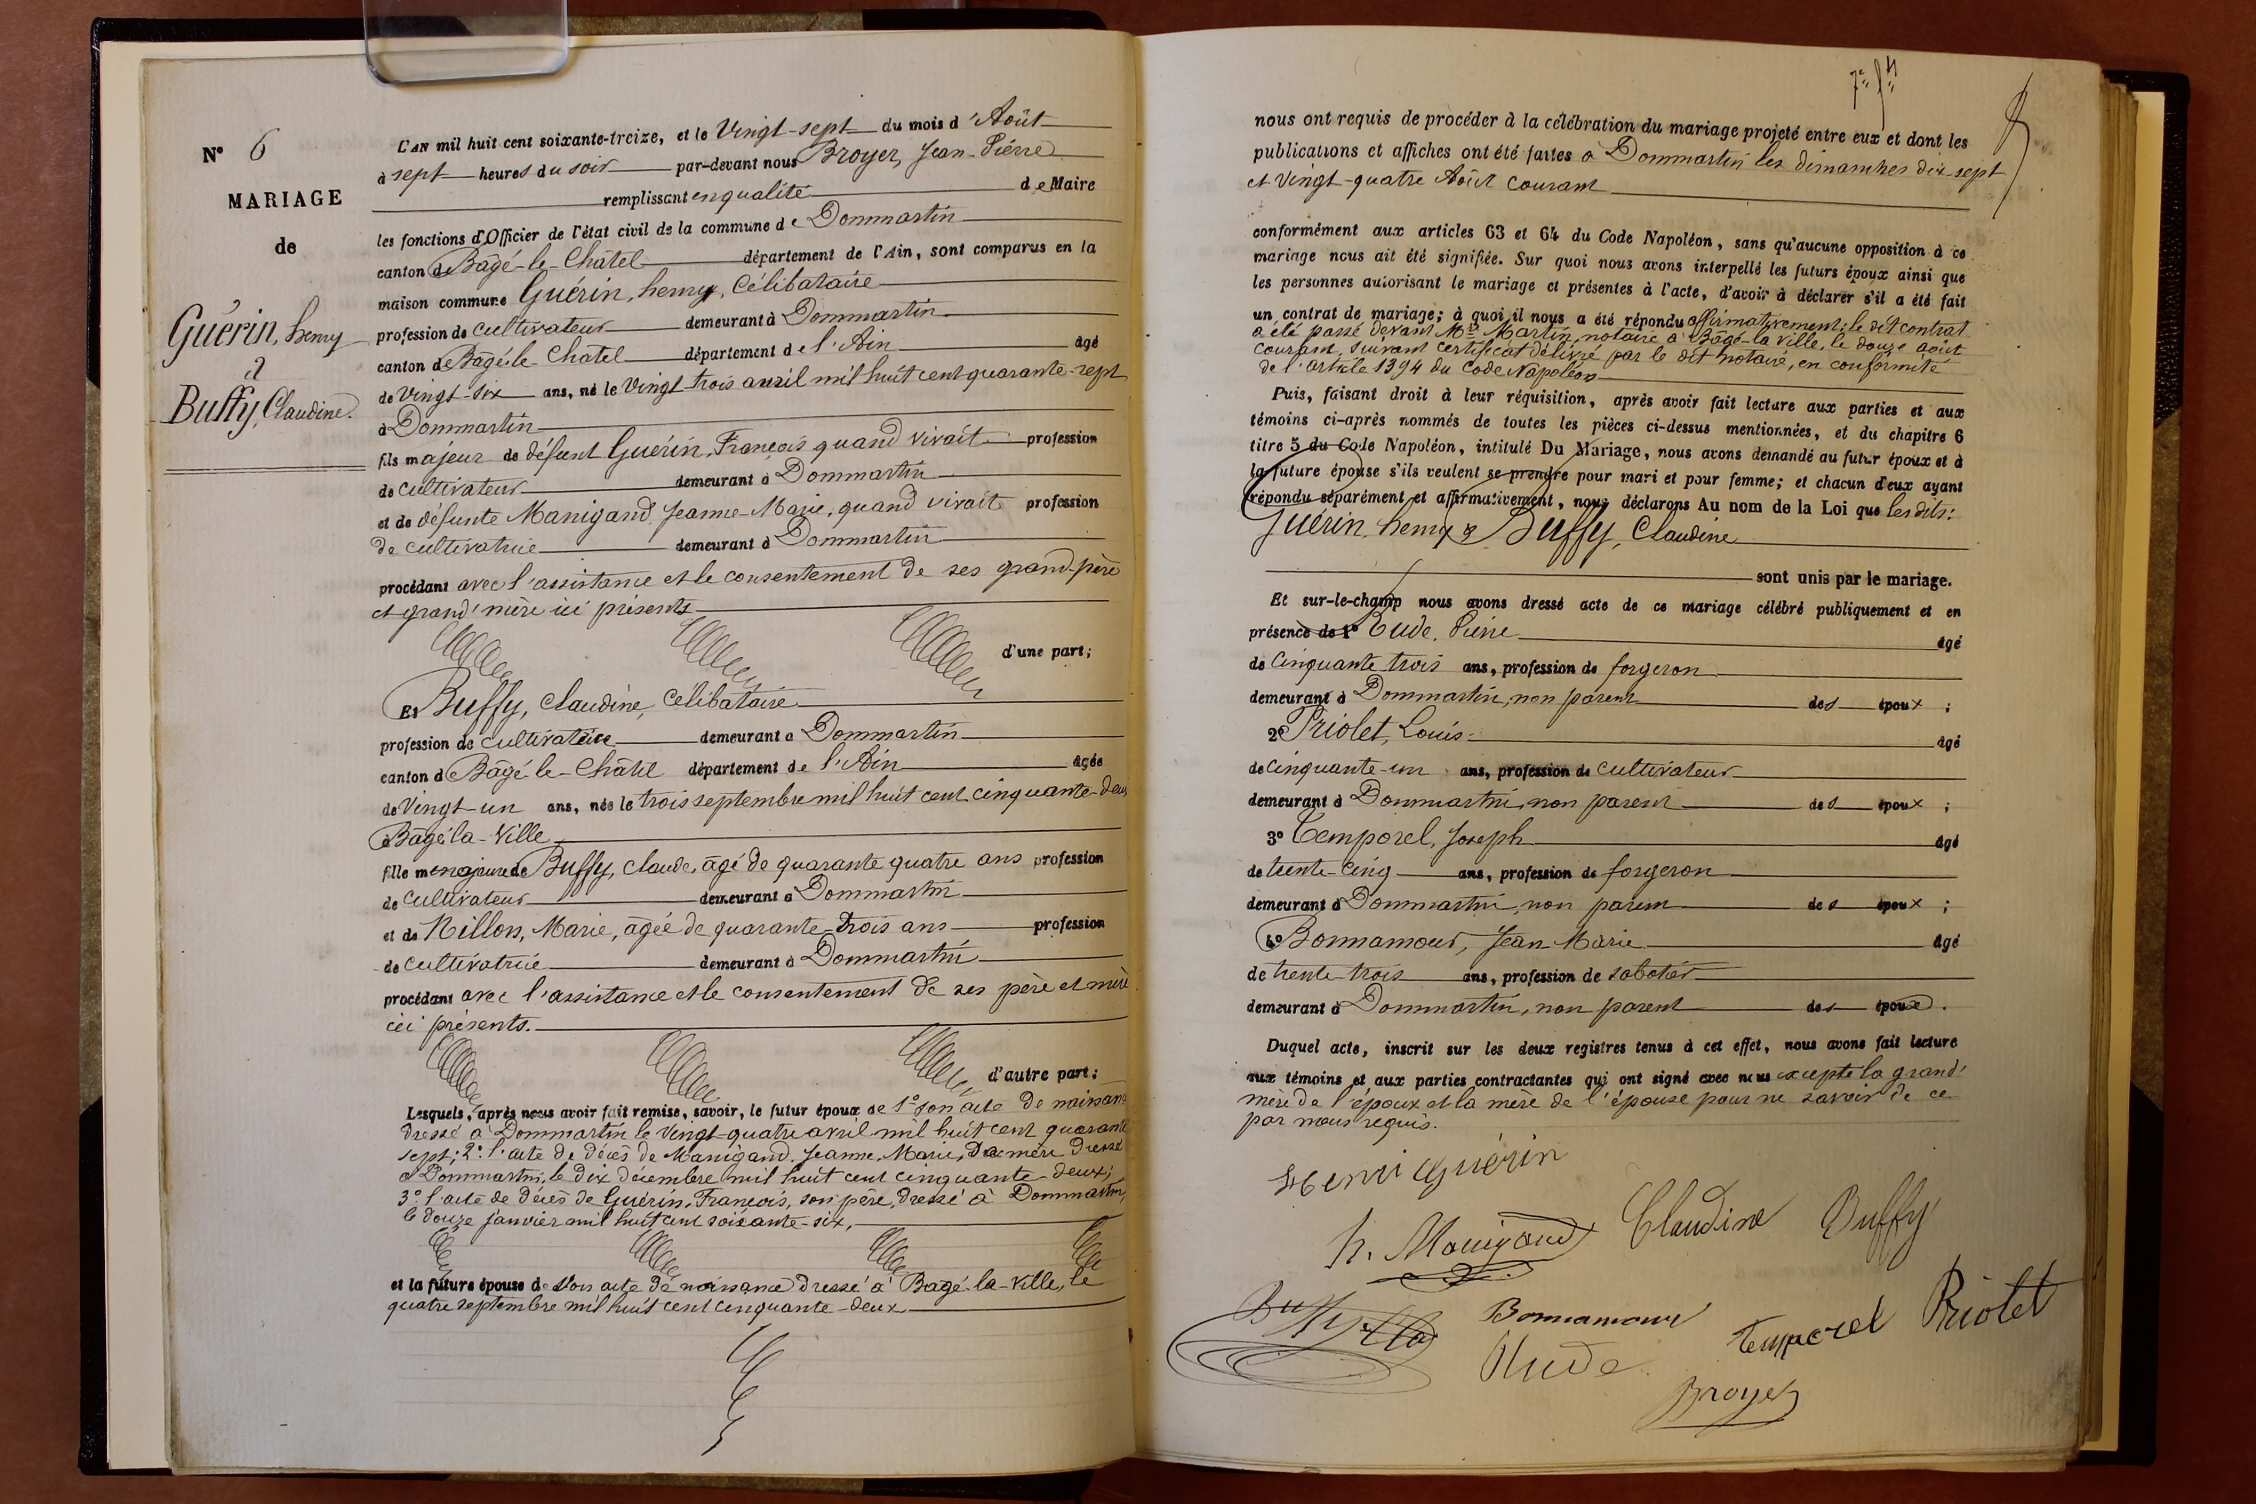 N° 6
MARIAGE
de
Guérin, henry
à
Buffy, Claudine.
L'AN mil huit cent soixante-treize, et le Vingt-sept du mois d'Août
à sept heures du soir par-devant nous Broyer, Jean-Pierre
remplissant en qualité de Maire
les fonctions d'Officier de l'état civil de la commune de Dommartin
canton de Bâgé-le-Châtel département de l'Ain, sont comparus en la
maison commune Guérin, henry, Célibataire
profession de cultivateur demeurant à Dommartin
canton de Bâgé-le Châtel département de l'Ain âgé
de Vingt-six ans, né le Vingt trois avril mil huit cent quarante-sept
à Dommartin
fils majeur de défunt Guérin, François quand vivait profession
de cultivateur demeurant à Dommartin
et de défunte Manigand, Jeanne-Marie, quand vivait profession
de cultivatrice demeurant à Dommartin
procédant avec l'assistance et le consentement de ses grand-père
et grand'mère ici présents
d'une part;
Et Buffy, Claudine, Célibataire
profession de cultivatrice demeurant à Dommartin
canton de Bâgé-le-Châtel département de l'Ain âgée
de Vingt-un ans, née le trois septembre mil huit cent cinquante-deux
à Bâgé-la-Ville
fille mineure de Buffy, Claude, âgé de quarante quatre ans profession
de cultivateur demeurant à Dommartin
et de Nillon, Marie, âgée de quarante-trois ans profession
de cultivatrice demeurant à Dommartin
procédant avec l'assistance et le consentement de ses père et mère
ici présents.
d'autre part;
Lesquels, après nous avoir fait remise, savoir, le futur époux de 1° son acte de naissance
dressé à Dommartin le Vingt-quatre avril mil huit cent quarante
sept; 2° l'acte de décès de Manigand, Jeanne, Marie, sa mère dressé
à Dommartin, le dix décembre mil huit cent cinquante-deux;
3° l'acte de décès de Guérin, François, son père, dressé à Dommartin,
le douze janvier mil huit cent soixante-six,
et la future épouse de son acte de naissance dressé à Bâgé-la-Ville, le
quatre septembre mil huit cent cinquante-deux
nous ont requis de procéder à la célébration du mariage projeté entre eux et dont les
publications et affiches ont été faites à Dommartin les dimanches dix-sept
et Vingt-quatre Août courant
conformément aux articles 63 et 64 du Code Napoléon, sans qu'aucune opposition à ce
mariage nous ait été signifiée. Sur quoi nous avons interpellé les futurs époux ainsi que
les personnes autorisant le mariage et présentes à l'acte, d'avoir à déclarer s'il a été fait
un contrat de mariage; à quoi il nous a été répondu affirmativement; le dit contrat
a été passé devant Me Martin, notaire à Bâgé-la-Ville, le douze août
courant, suivant certificat délivré par le dit notaire, en conformité
de l'article 1394 du Code Napoléon
Puis, faisant droit à leur réquisition, après avoir fait lecture aux parties et aux
témoins ci-après nommés de toutes les pièces ci-dessus mentionnées, et du chapitre 6
titre 5 du Code Napoléon, intitulé Du Mariage, nous avons demandé au futur époux et à
la future épouse s'ils veulent se prendre pour mari et pour femme; et chacun d'eux ayant
répondu séparément et affirmativement, nous déclarons Au nom de la Loi que les dits:
Guérin, henry & Buffy, Claudine
sont unis par le mariage.
Et sur-le-champ nous avons dressé acte de ce mariage célébré publiquement et en
présence de 1° Rude, Pierre âgé
de Cinquante trois ans, profession de forgeron
demeurant à Dommartin, non parent des époux;
2° Priolet, Louis âgé
de cinquante-un ans, profession de cultivateur
demeurant à Dommartin, non parent des époux;
3° Temporel, Joseph âgé
de trente-cinq ans, profession de forgeron
demeurant à Dommartin, non parent des époux;
4° Bonnamour, Jean-Marie âgé
de trente-trois ans, profession de sabotier
demeurant à Dommartin, non parent des époux.
Duquel acte, inscrit sur les deux registres tenus à cet effet, nous avons fait lecture
aux témoins et aux parties contractantes qui ont signé avec nous excepté la grand'
mère de l'époux et la mère de l'épouse pour ne savoir de ce
par nous requis.
Henri Guérin
h. Manigand Claudine Buffy
Buffy Bonnamour Temporel Priolet
Rude
Broyer